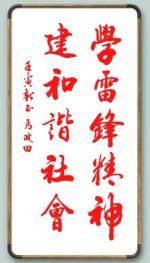 學雷鋒精神
建和諧社會
壬寅新正馬政田